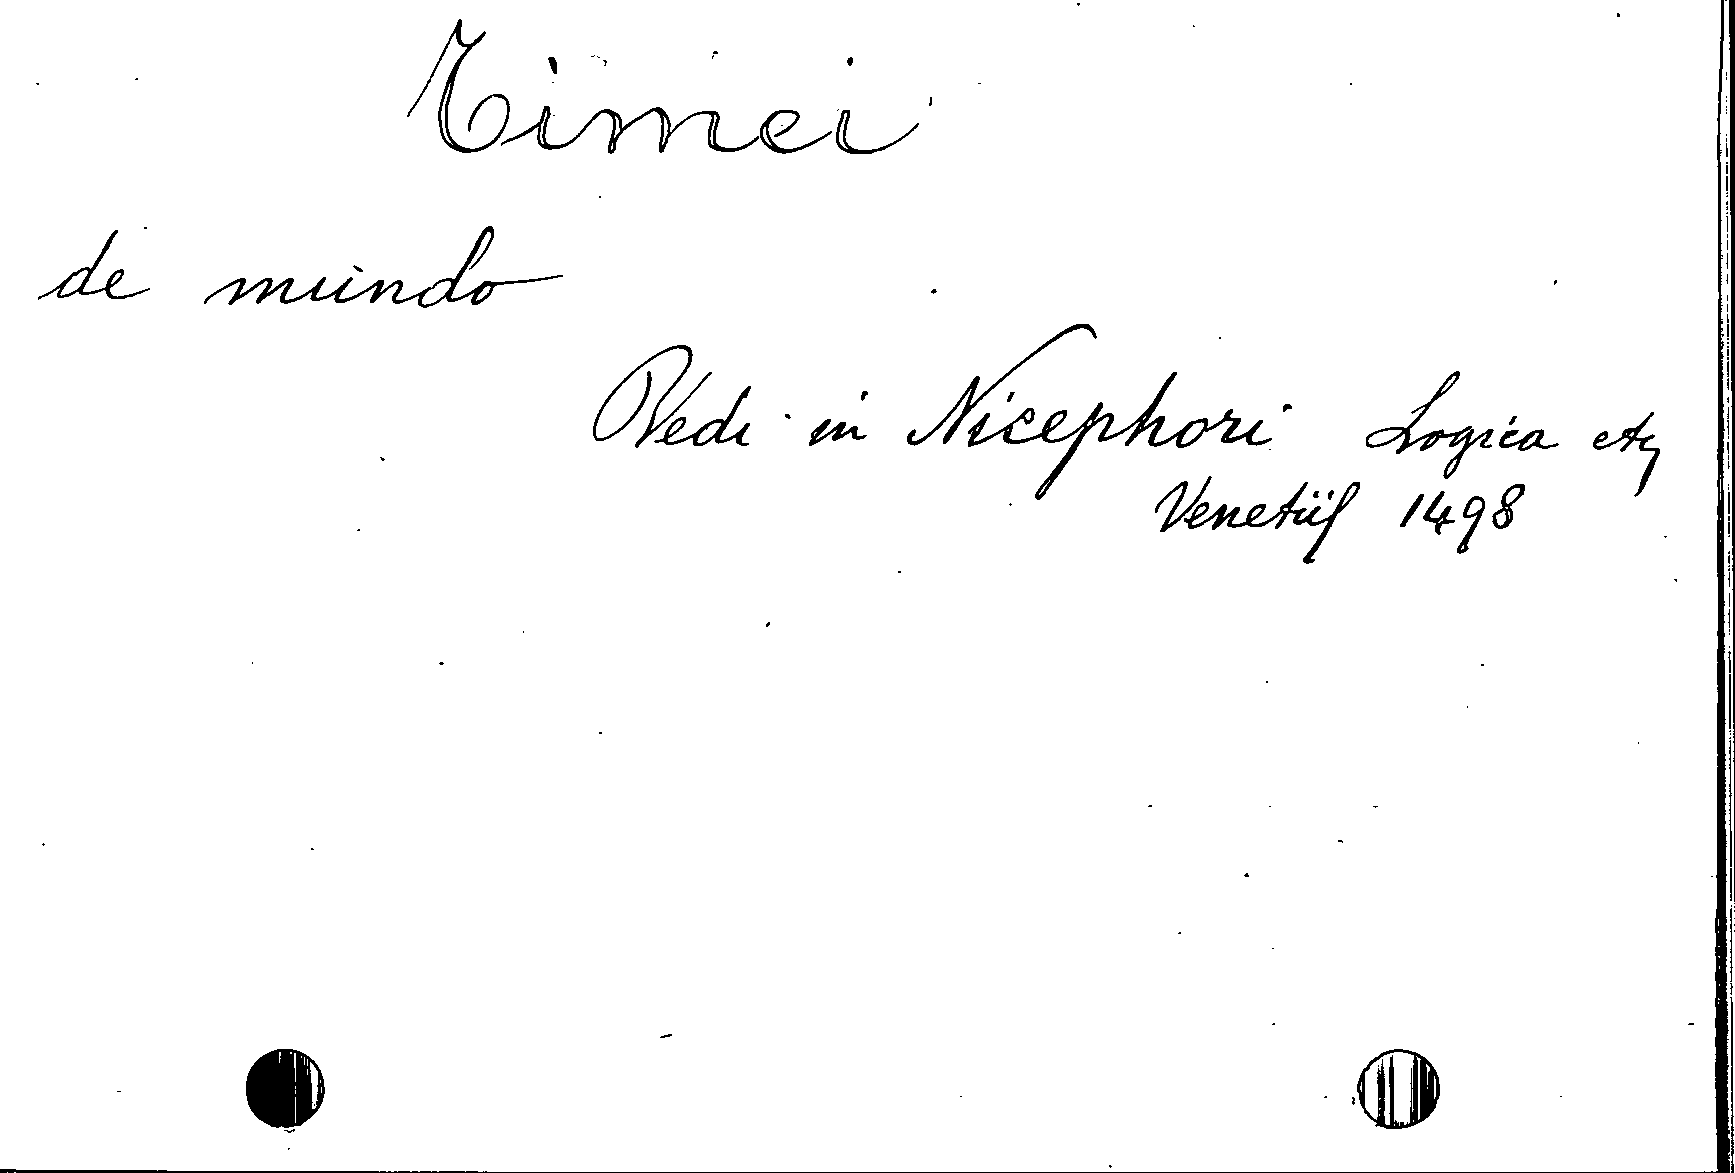 Timei
de mundo
Vedi in Nicephori Logica etc
Venetiis 1498